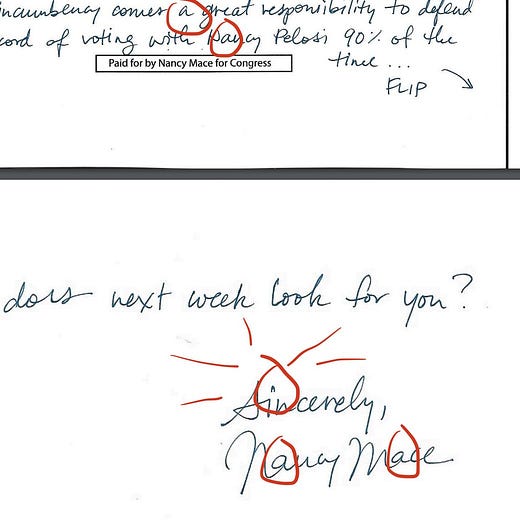 incumbency comes a great responsibility to defend
cord of voting with Nancy Pelosi 90% of the
time ...
Paid for by Nancy Mace for Congress
FLIP
does next week look for you?
Sincerely,
Nancy Mace